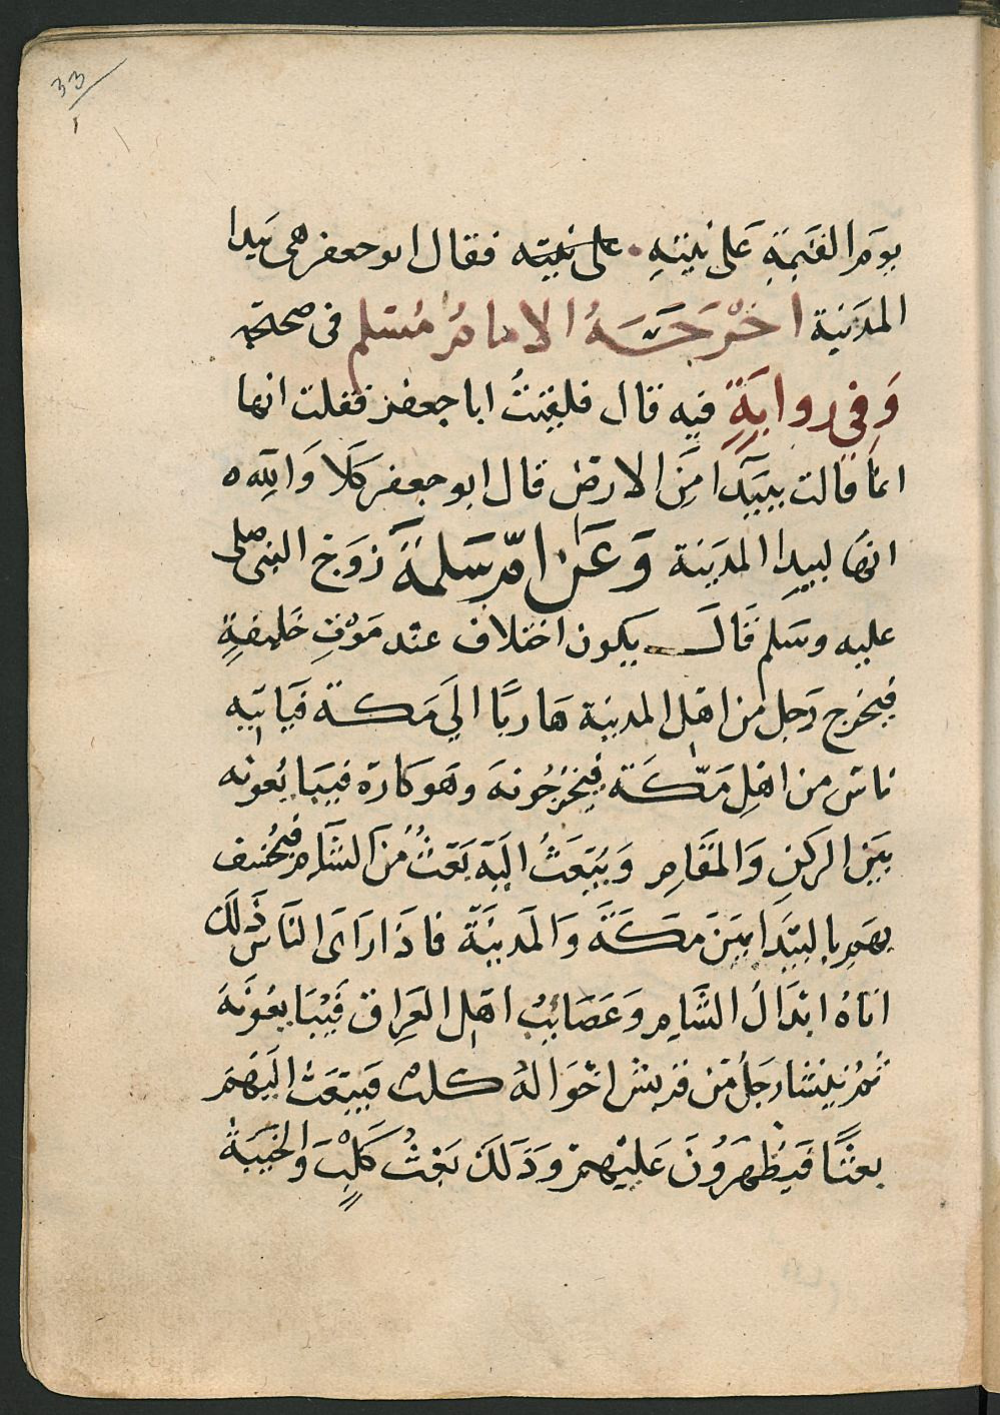 33
1
يومَ القيٰمةِ عَلى نيتهِ . على نيته فقال ابو جعفر هى بَيدا
المدَنية اخْرَجَهُ الامامُ مُسْلم فى صحيحه
وَفِي روايَةٍ فيه قال فلقيتُ ابا جعفر فقلت انها
انما قالت ببَيدا مِن الارض قال ابو جعفر كَلا وَالله
انها لبيدا المدَينة وَعَن امّ سَلمَةَ زوَج النبى صلى
عليه وسَلم قَالَ يكون اختلاف عند مَوْتِ خَليفةٍ
فيخرج رَجل من اهل المدينة هَاربًا الي مَكة فَياتيه
ناس من اهلِ مَكَة فيخرجُونهَ وهَو كاره فيبَايعونه
بَين الركنِ وَالمقَامِ وَيُبعَثُ اليَه بَعَثٌ مُنَ الشَامِ فيُخسف
بهَمِ بالبَيدَا بيَنَ مَكَةَ وَالمَدينَة فاذَا رَاَى النَاسَ ذَلكَ
اتاهُ ابَدَالُ الشَامِ وَعَصَائِبُ اهل العَراق فَيُبَايعُونَهُ
ثمُ ينشا رجَلُ مَن قريش اخَوَاله كلب فَيبعَث اليَهمَ
بعثًا فَيظْهَرُونَ عَليْهمْ وَذَلكَ بَعْثُ كَلْبٍ وَالخَيبَةُ